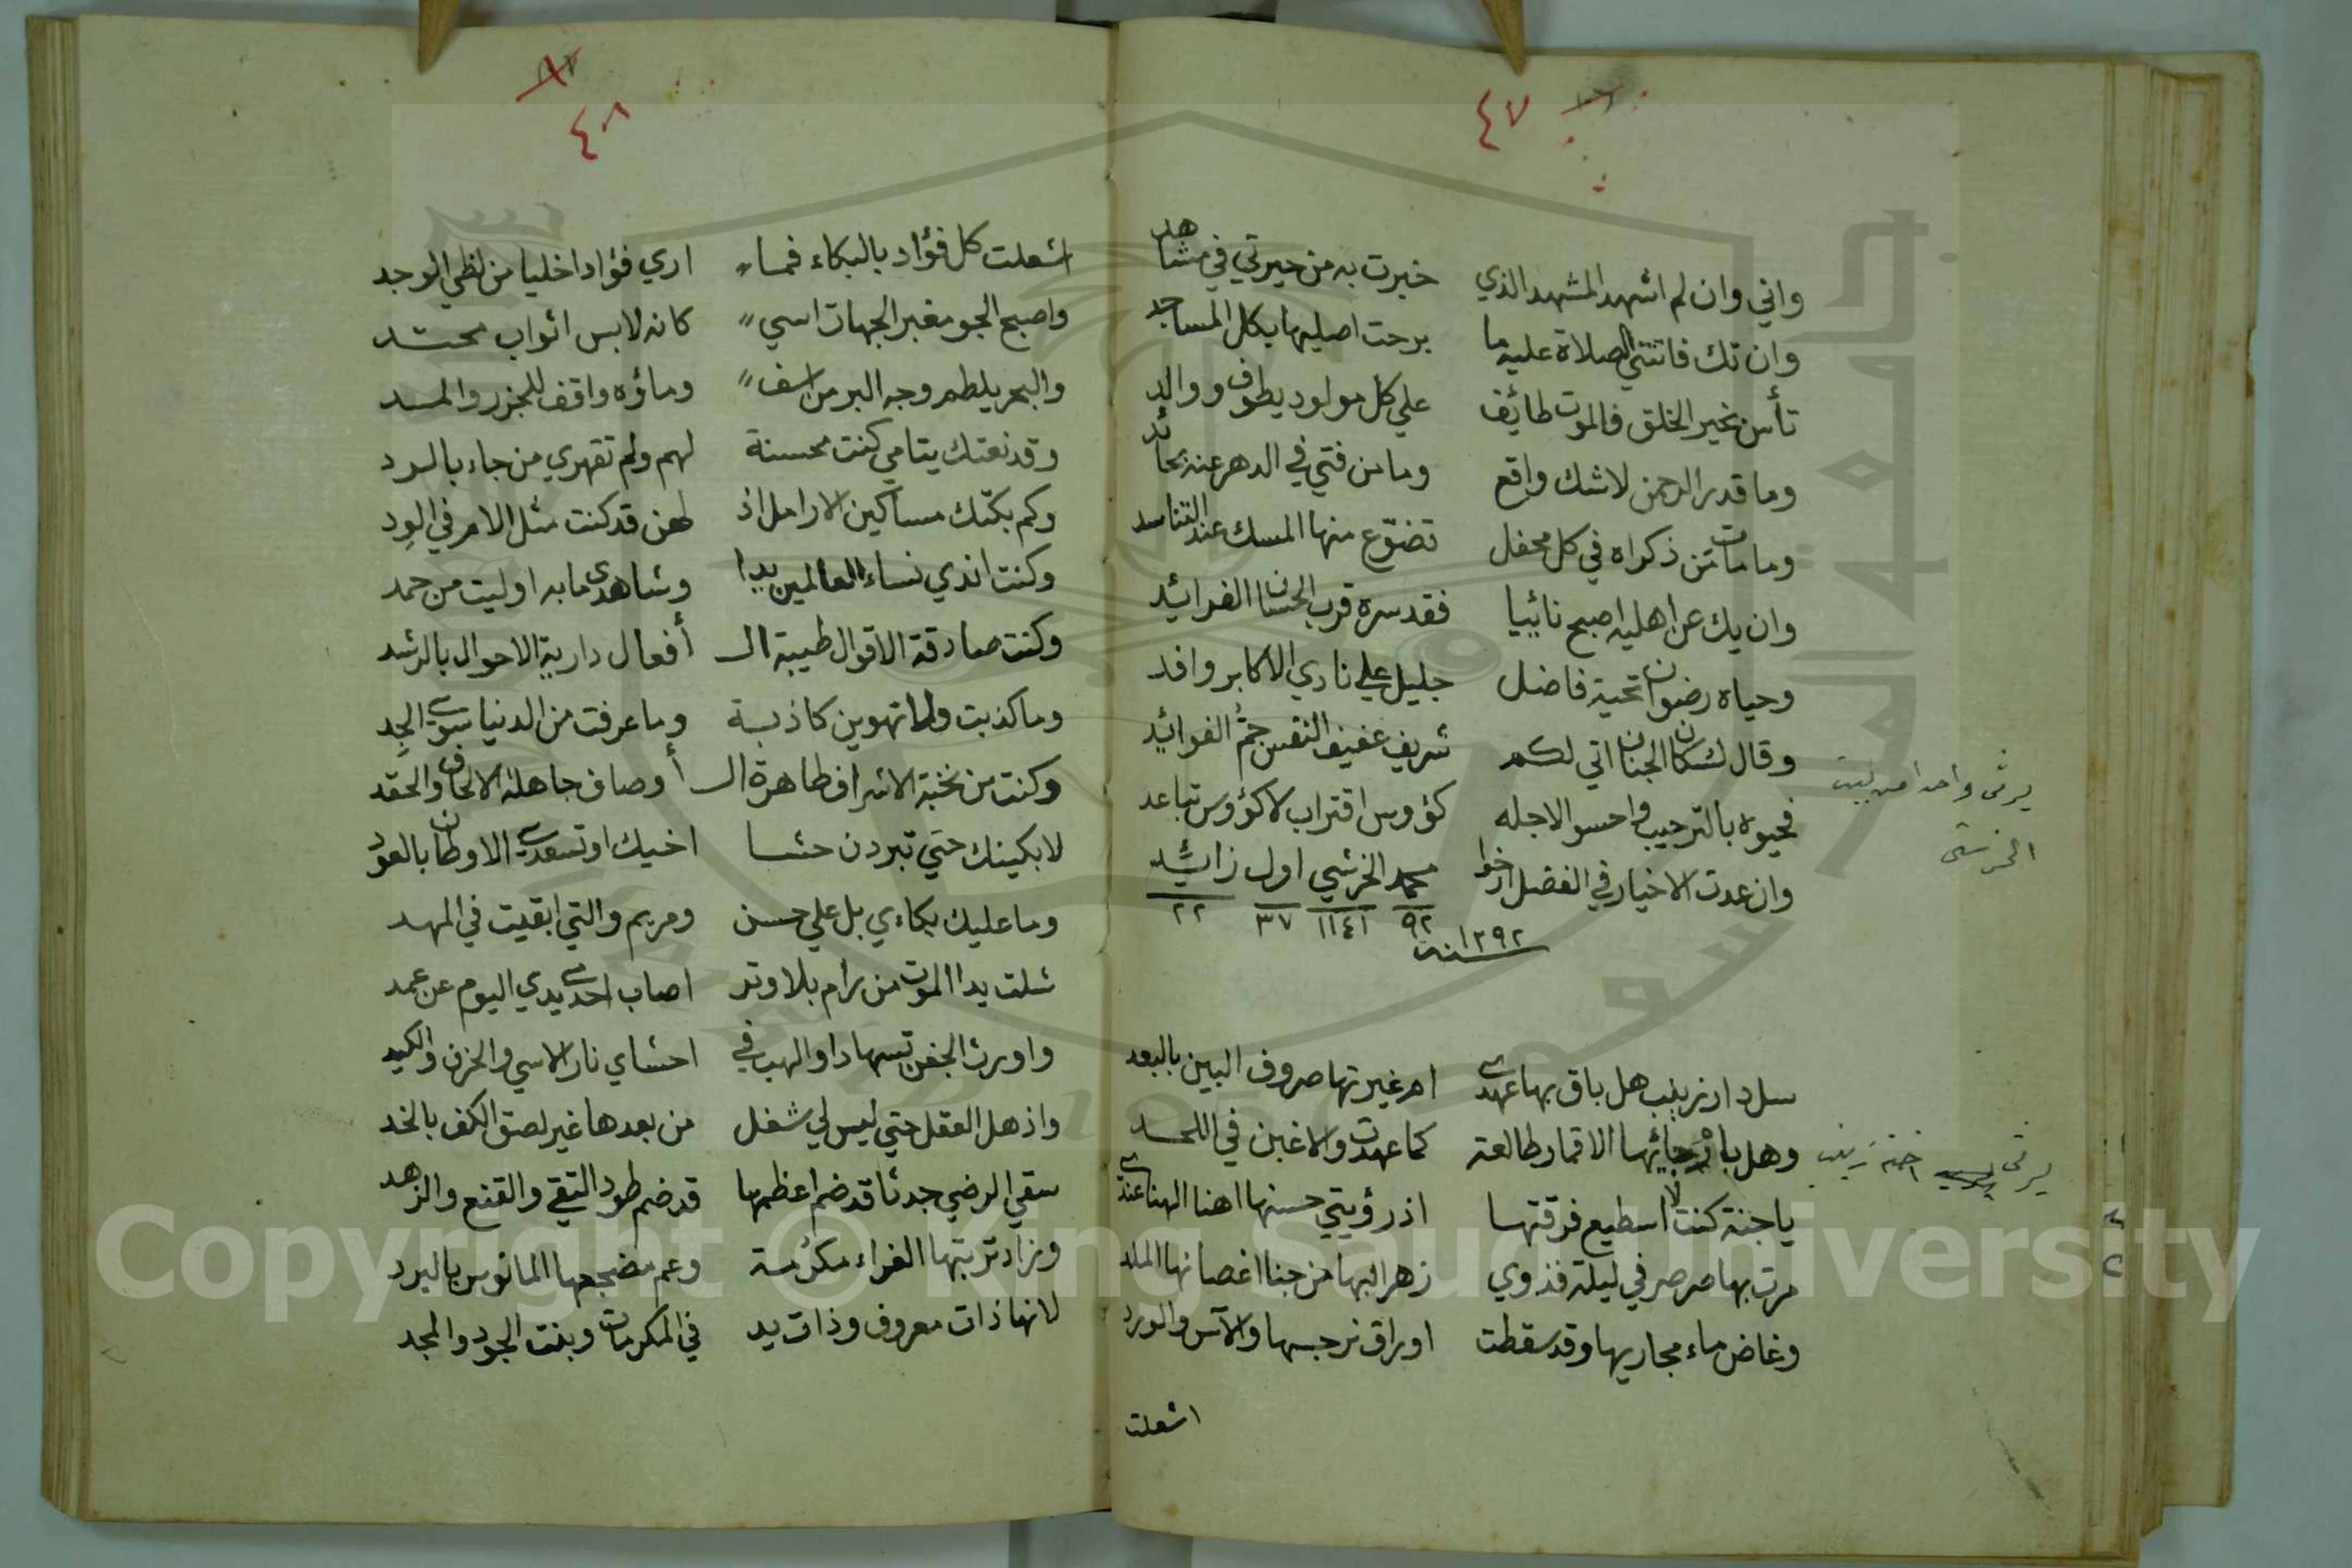 ٤٧
واني وان لم اشهد المشهد الذي خبرت به من حيرتي في مشاهد
وان تك فاتتني الصلاة عليه ما برحت اصليها بكل المساجد
تأس بخير الخلق فالموت طائف علي كل مولود يطوف ووالد
وما قدر الرحمن لا شك واقع وما من فتي في الدهر عنه بحائد
وما مات من ذكراه في كل محفل تضوّع منها المسك عند التناسد
وان يك عن اهليه اصبح نائيا فقد سره قرب الحسان الفرائد
وحياه رضوان تحية فاضل جليل علي نادي الاكابر وافد
وقال لسكان الجنان اتي لكم شريف عفيف النفس جمُّ الفوائد
فحيوه بالترحيب واحسوا لاجله كؤوس اقتراب لا كؤوس تباعد
وان عدت الاخيار في الفضل ارخوا محمد الخرشي اول زائد
٩٢ ١١٤١ ٣٧ ٢٢
سنة ١٢٩٢
يرثى واحدا من بيت
الخرشى
سل دار زينب هل باق بها عهدي ام غيرتها صروف البين بالبعد
وهل بارجائها الاقمار طالعة كما عهدت والا غبن في اللحد
يا جنة كنت لا اسطيع فرقتها اذ رؤيتي حسنها اهنا الهنا عندي
مرت بها صرصر في ليلة فذوي زهر البها من جنا اغصانها الملد
وغاض ماء مجاريها وقد سقطت اوراق نرجسها والآس والورد
يرثى اخته زينب
اشعلت
٤٨
اشعلت كل فؤاد بالبكاء فما اري فؤادا خليا من لظي الوجد
واصبح الجو مغبر الجهات اسي كانه لابس اثواب محتد
والبحر يلطم وجه البر من اسف وماؤه واقف للجزر والمد
وقد نعتك يتامي كنت محسنة لهم ولم تقهري من جاء بالرد
وكم بكتك مساكين الارامل اذ لهن قد كنت مثل الام في الود
وكنت اندي نساء العالمين يدا وشاهدي ما به اوليت من حمد
وكنت صادقة الاقوال طيبة الـ أفعال دارية الاحوال بالرشد
وما كذبت ولا تهوين كاذبة وما عرفت من الدنيا سوي الجد
وكنت من نخبة الاشراف طاهرة الـ أوصاف جاهلة الالحاف والحقد
لابكينك حتي تبردن حشا اخيك او تسعدي الاوطان بالعود
وما عليك بكاءي بل علي حسن ومريم والتي ابقيت في المهد
شلت يدا الموت من رام بلا وتر اصاب احدي يدي اليوم عن عمد
واورث الجفن تسهادا والهب في احشاي نار الاسي والحزن والكيد
واذهل العقل حتي ليس لي شغل من بعدها غير لصق الكف بالخد
سقي الرضي جدثا قد ضم اعظمها قد ضم طود التقي والقنع والزهد
وزاد تربتها الغراء مكرمة وعم مضجعها المانوس بالبرد
لانها ذات معروف وذات يد في المكرمات وبنت الجود والمجد
Copyright © King Saud University